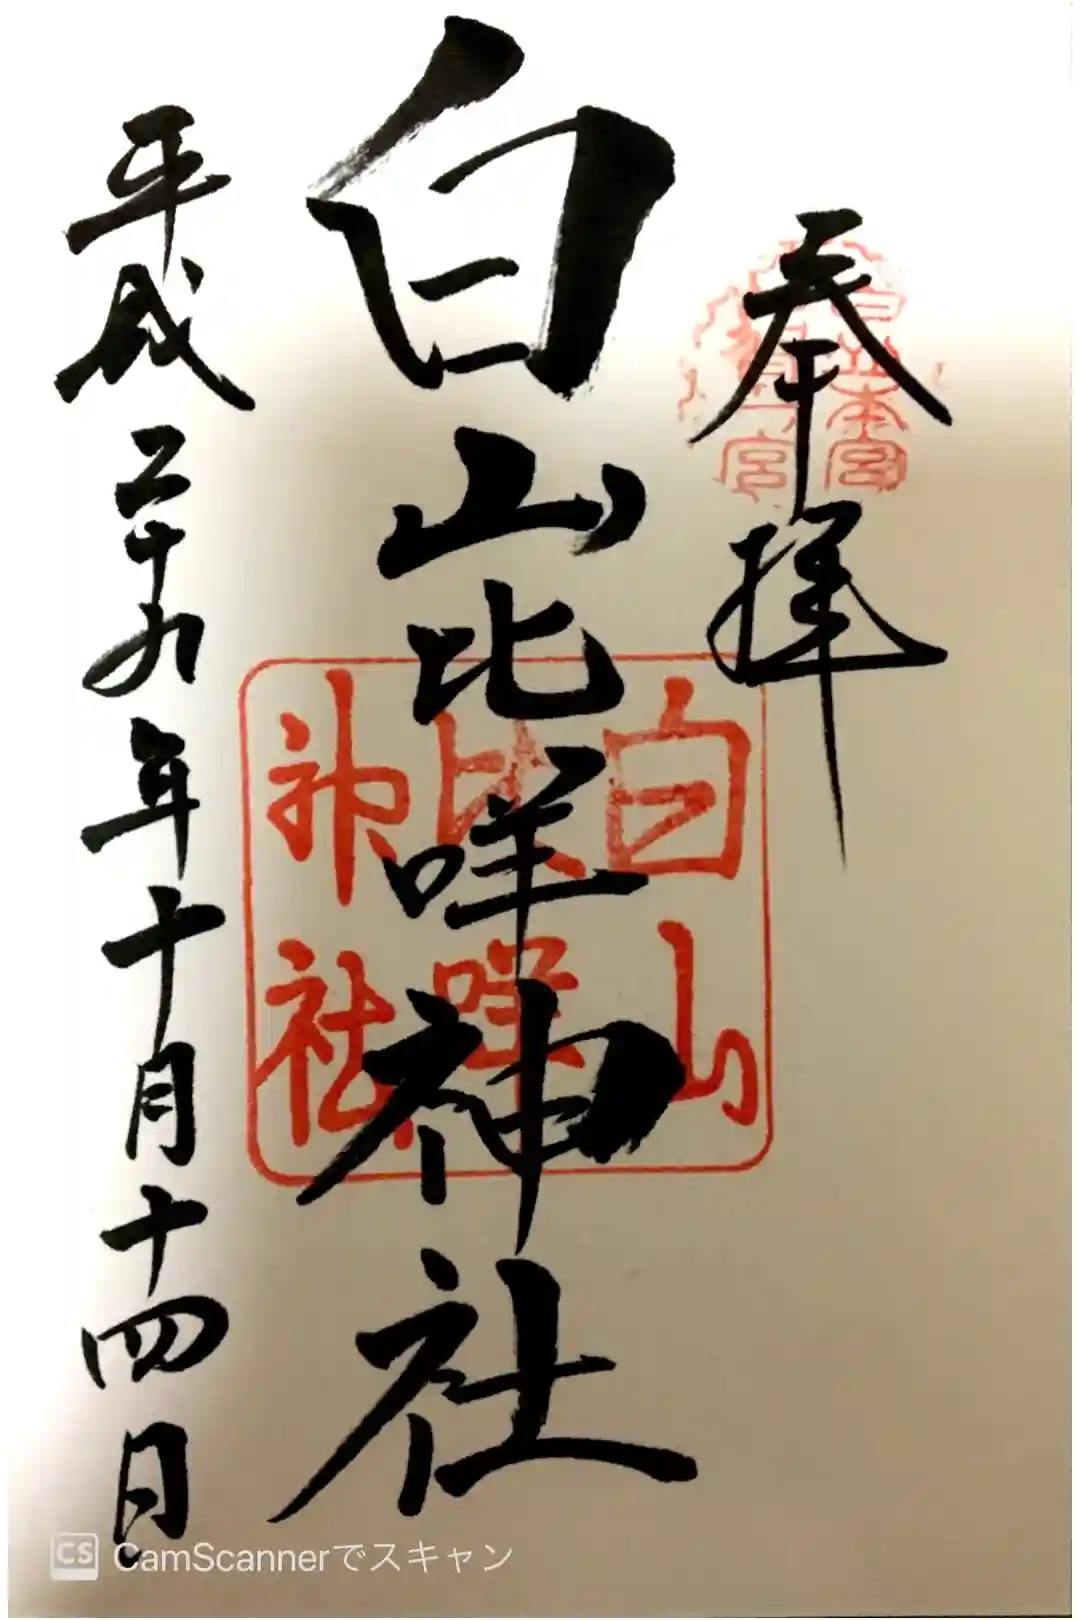 奉拝
白山本宮
加賀一宮
白山比咩神社
白山
比咩
神社
平成二十九年十月十四日
CS CamScannerでスキャン